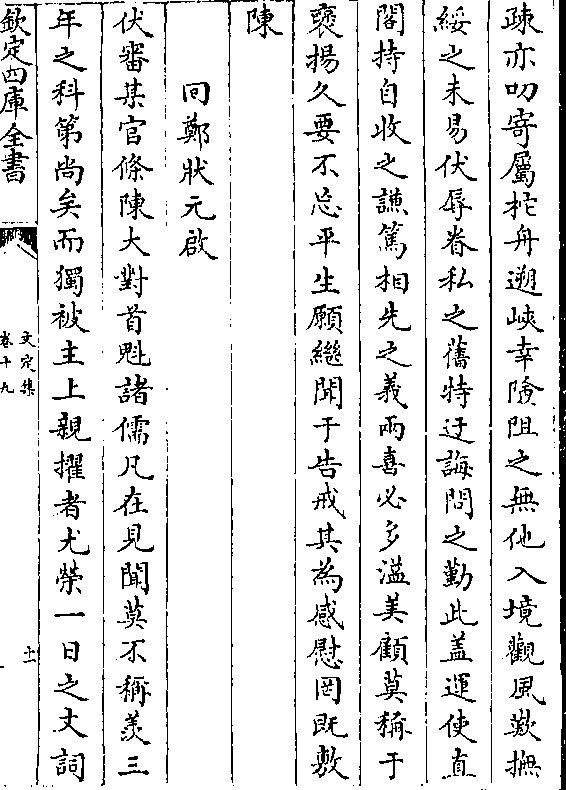 疎亦叨寄屬柁舟遡峽幸險阻之無他入境觀風歎撫
綏之未易伏辱眷私之舊特迂誨問之勤此蓋運使直
閣持自收之謙篤相先之義兩喜必多溢美顧莫稱于
褒揚久要不忘平生願繼聞于告戒其為感慰罔既敷
陳
回鄭狀元啟
伏審某官條陳大對首魁諸儒凡在見聞莫不稱羨三
年之科第尚矣而獨被主上親擢者尤榮一日之文詞
欽定四庫全書
文定集
卷十九
十一